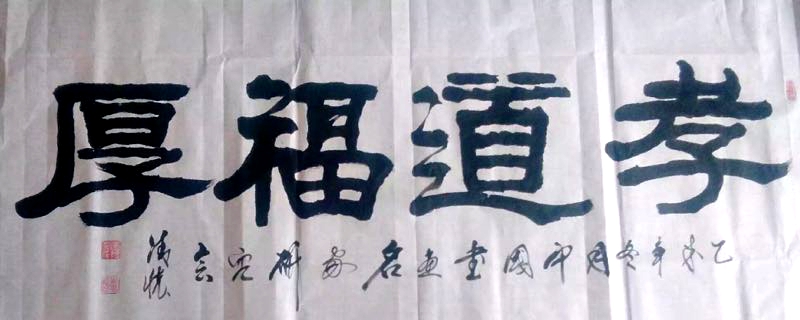 孝道福厚
乙未年冬月中國書画名家研究会